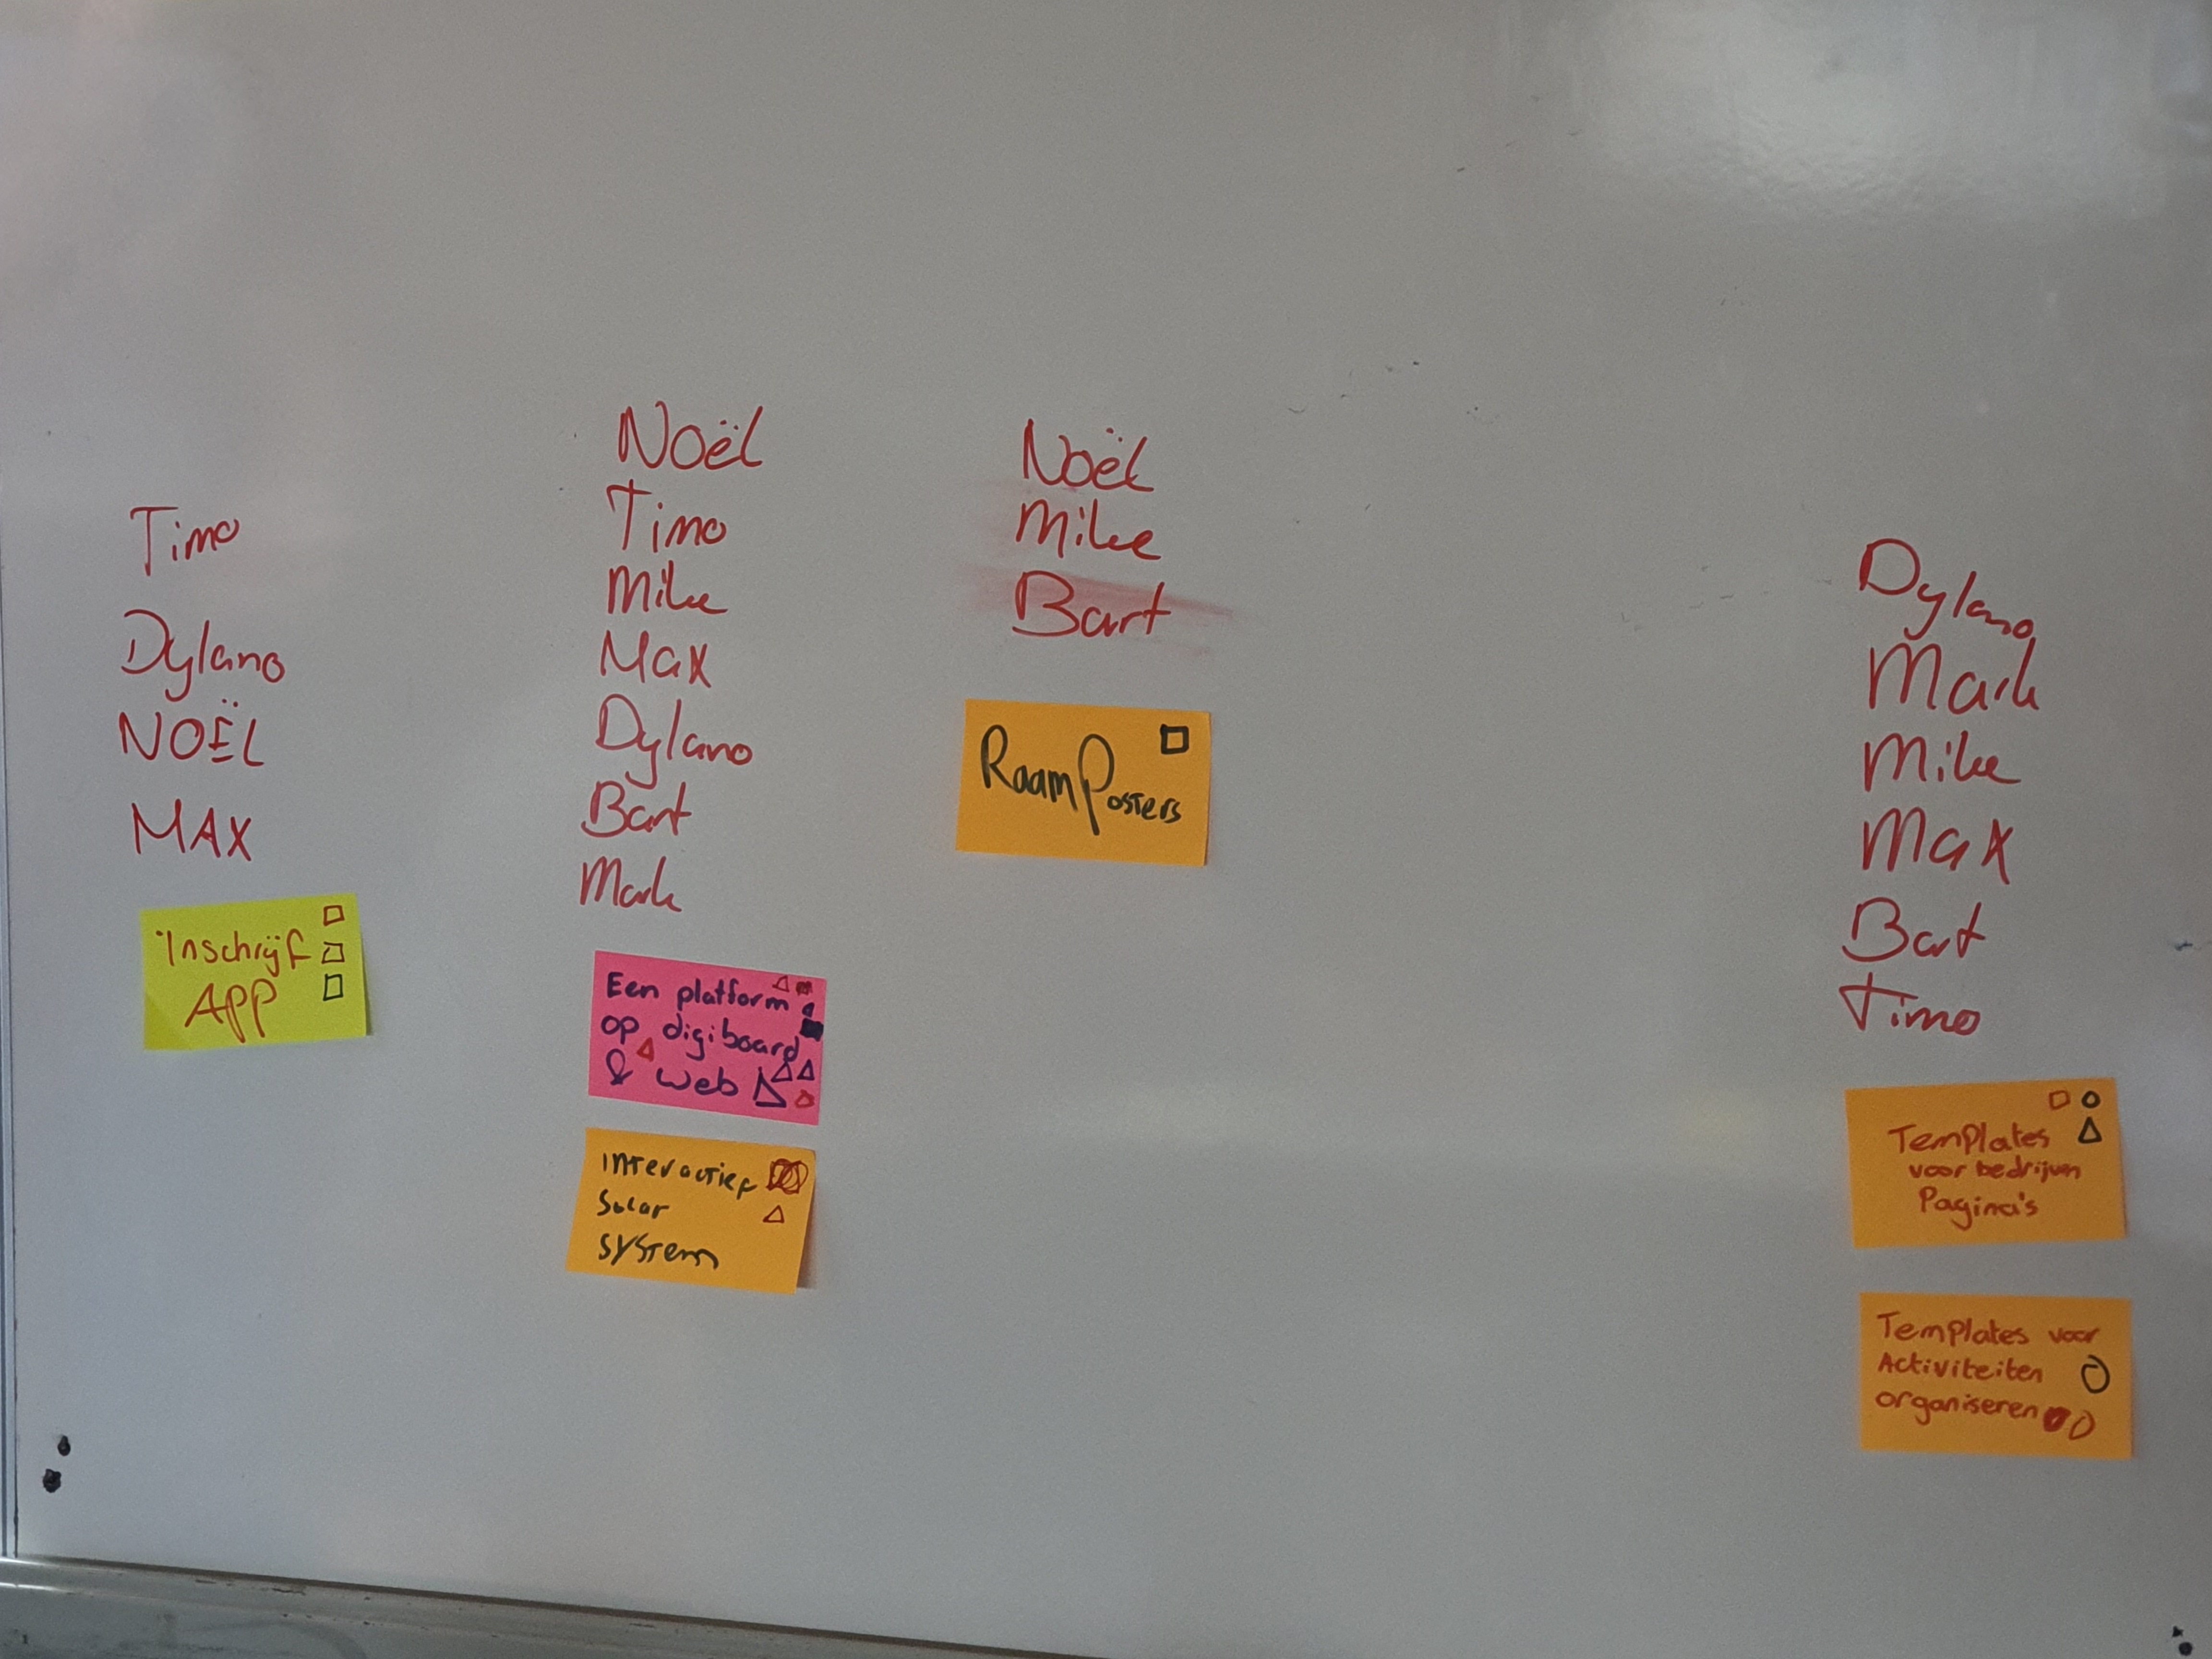 Timo
Dylano
NOËL
MAX
Inschrijf
APP
Noël
Timo
Mike
Max
Dylano
Bart
Mark
Een platform
op digiboard
& web
Interactief
Solar
System
Noël
Mike
Bart
RaamPosters
Dylano
Mark
Mike
Max
Bart
Timo
Templates
voor bedrijven
Pagina's
Templates voor
Activiteiten
organiseren